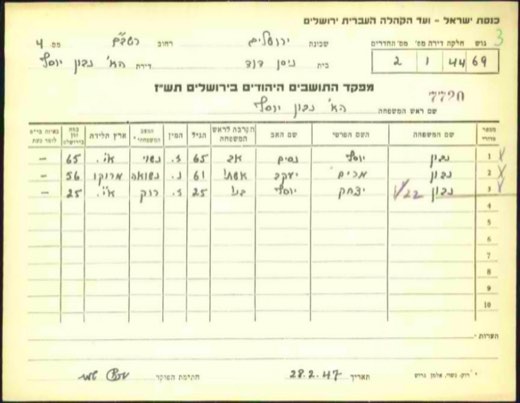 כנסת ישראל - ועד הקהלה העברית ירושלים
3
גוש חלקה דירה מס' מס' החדרים
69 44 1 2
שכונת ירושלים רחוב רשב"ם מס 4
בית ניסן דירת הא' נבון יוסף
מפקד התושבים היהודים בירושלים תש"ז
7720
שם ראש המשפחה הא' נבון יוסף
מספר סדורי שם המשפחה השם הפרטי שם האב הקרבה לראש המשפחה הגיל המין המצב המשפחתי* ארץ הלידה כמה זמן בירושלים
1 נבון יוסף נסים אב 65 ז. נשוי א"י. 65 -
2 נבון מרים יעקב אשתו 61 נ. נשואה מרוקו 56 -
3 נבון 22 יצחק יוסף בנו 25 ז. רוק א"י. 25 -
4
5
6
7
8
9
10
הערות:
* רוק, נשוי, אלמן, גרוש
תאריך 28.2.47 חתימת הפוקד